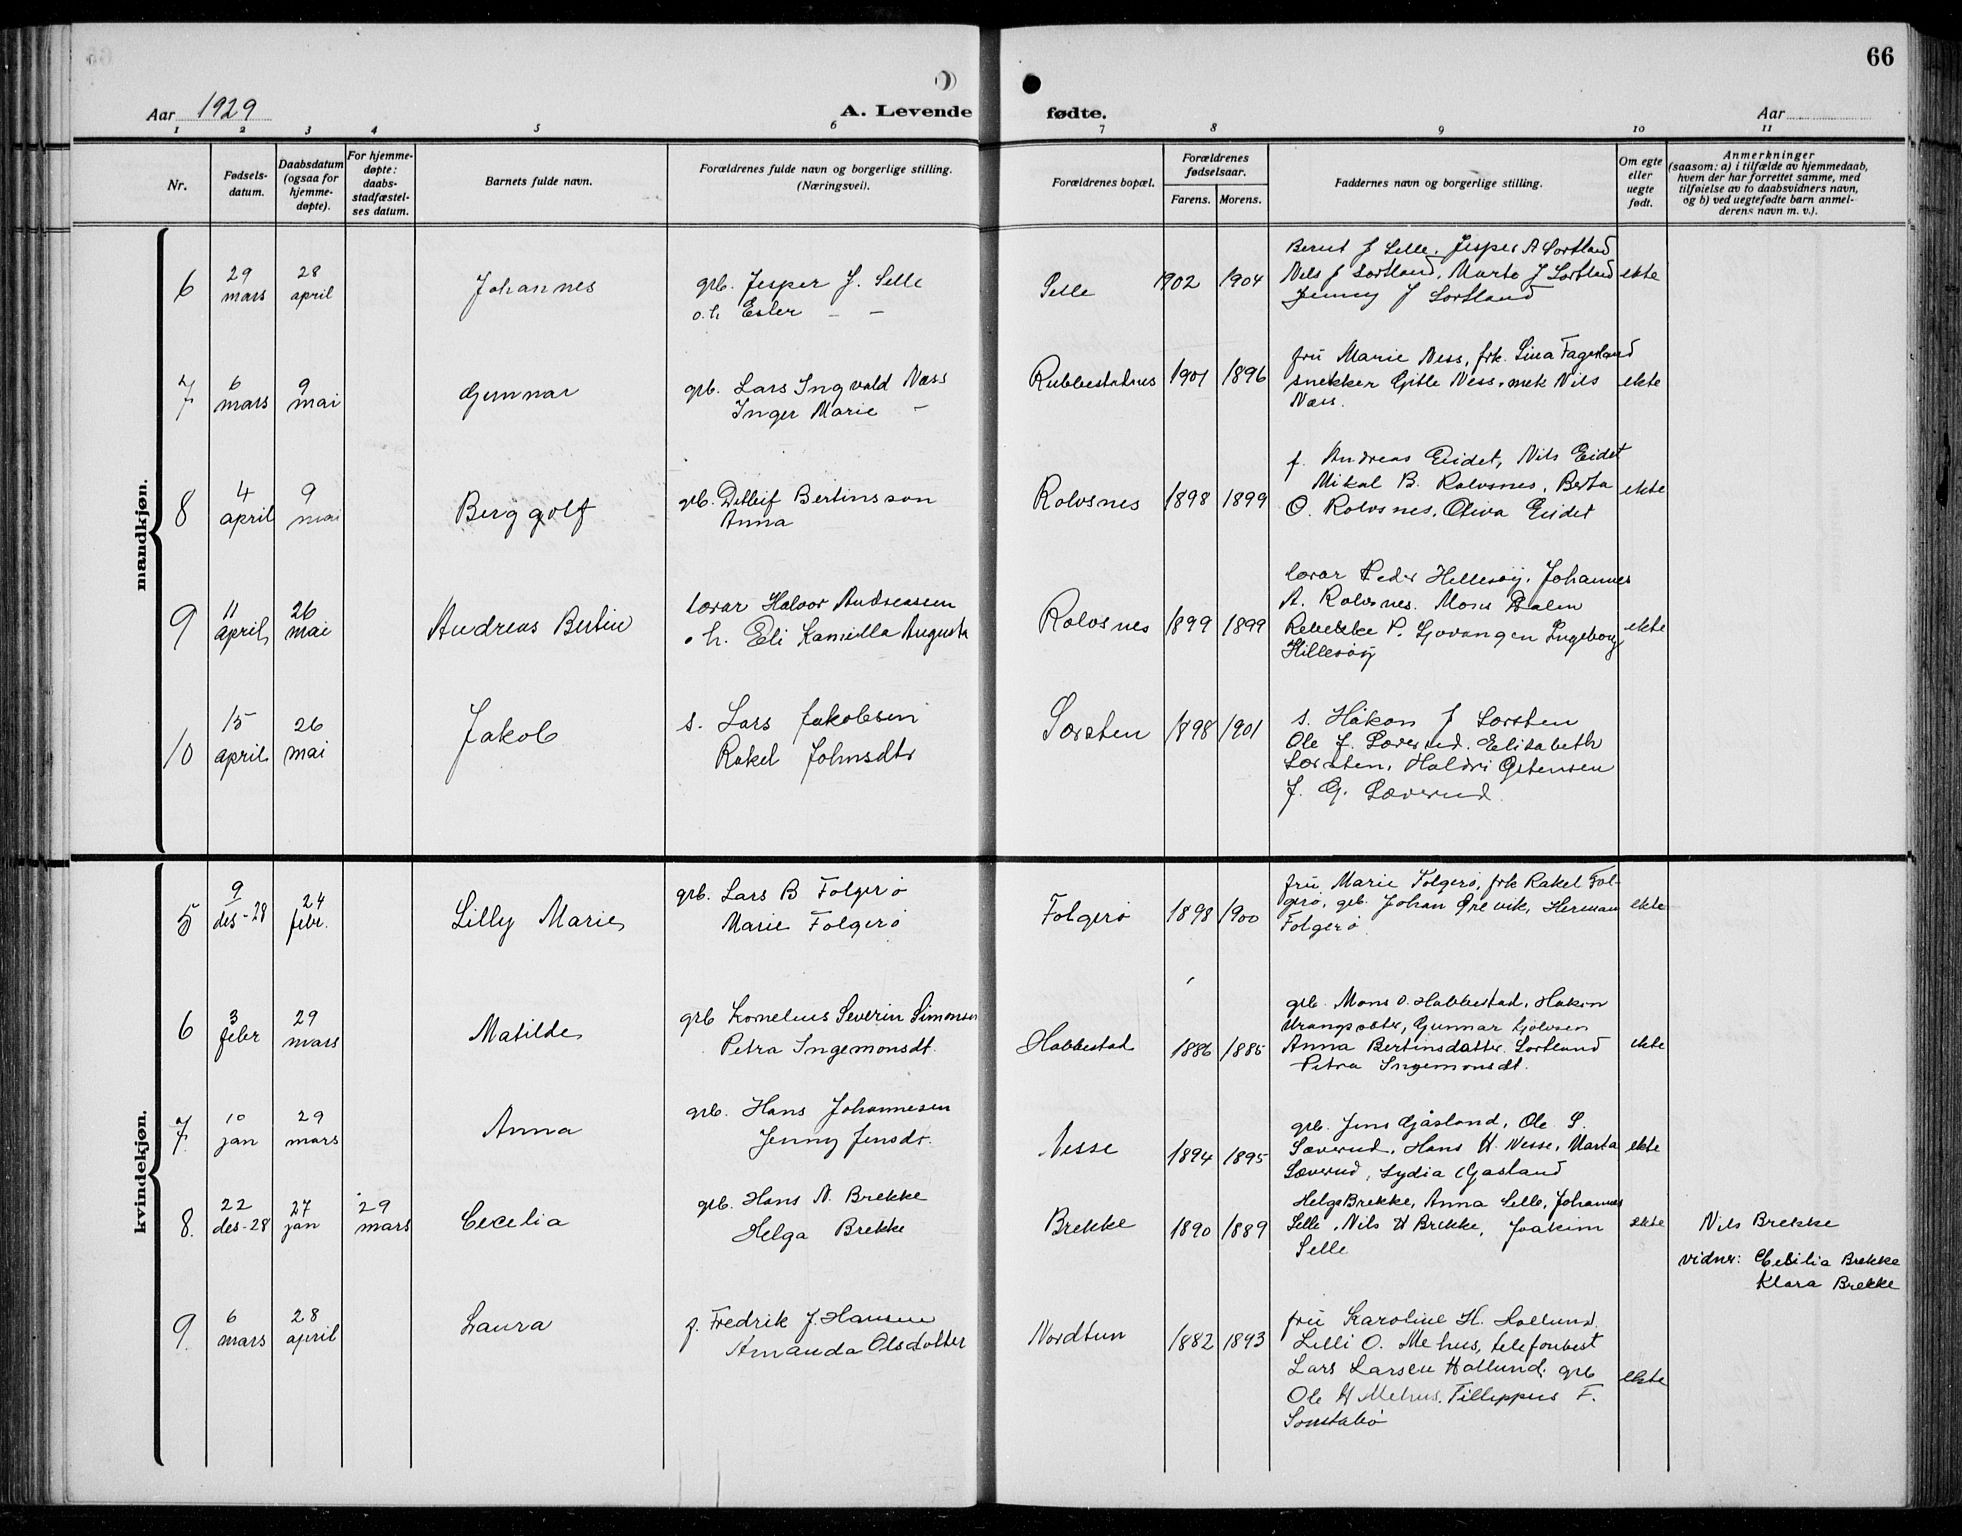 66
Aar 1929
A. Levende
fødte.
Aar
1 2 3 4 5 6 7 8 9 10 11
Nr.
Fødsels-
datum.
Daabsdatum
(ogsaa for
hjemme-
døpte).
For hjemme-
døpte:
daabs-
stadfæstel-
ses datum.
Barnets fulde navn.
Forældrenes fulde navn og borgerlige stilling.
(Næringsvei).
Forældrenes bopæl.
Forældrenes
fødselsaar.
Farens. Morens.
Faddernes navn og borgerlige stilling.
Om egte
eller
uegte
født.
Anmerkninger
(saasom: a) i tilfælde av hjemmedaab,
hvem der har forrettet samme, med
tilføielse av to daabsvidners navn,
og b) ved uegtefødte barn anmel-
derens navn m. v.).
mandkjøn.
6
29
mars
28
april
Johannes
grb. Jesper J. Selle
o. h. Ester — —
Selle
1902 1904
Bernt J Selle, Jesper A Sortland
Nels J Sortland, Marta J Sortland
Jenny J Sortland
ekte
7
6
mars
9
mai
Gunnar
grb. Lars Ingvald Næss
Inger Marie —
Rubbestadnes
1901 1896
fru Marie Ness, frk. Lina Fagerland
snekker Gitle Ness, mek Nils
Næss.
ekte
8
4
april
9
mai
Berg golf
grb. Detleif Bertinsson
Anna
Rolvsnes
1898 1899
f. Andreas Eidet, Nils Eidet
Mikal B. Rolvsnes, Berta
O. Rolvsnes, Oliva Eidet
ekte
9
11
april
26
mai
Andreas Bertin
lærar Halvor Andreassen
o h. Eli Kamilla Augusta
Rolvsnes
1899 1899
lærar Peder Hillesøy, Johannes
A. Rolvsnes. Mons Dalen
Rebekke P. Gjøvangen Ingeborg
Hillesøy
ekte
10
15
april
26
mai
Jakob
s. Lars Jakobsen
Rakel Johnsdtr
Sørsten
1898 1901
s. Håkon J Sørsten
Ole J. Sæverud. Elisabeth
Sørsten, Haldri Ostensen
J. G. Sæverud
kvindekjøn.
5
9
des-28
24
febr.
Lilly Marie
grb. Lars B Folgerø
Marie Folgerø
Folgerø
1898 1900
fru Marie Folgerø, frk Rakel Fol-
gerø, grb. Johan Ørevik, Herman
Folgerø
ekte
6
3
febr
29
mars
Matilde
grb Kornelius Severin Simonsen
Petra Ingemonsdt.
Habbestad
1886 1885
grb. Mons O. Habbestad, Hakon
Vrangsæter, Gunnar
Anna Bertinsdatter Sortland
Petra Ingemonsdt.
ekte
7.
10
jan
29
mars
Anna
grb. Hans Johannesen
Jenny Jensdt.
Nesse
1894 1895
grb. Jens Gåsland, Ole S.
Sæverud, Hans H. Nesse, Marta
Sæverud, Lydia Gåsland
ekte
8.
22
des-28
27
jan
29
mars
Cecelia
grb. Hans N. Brekke
Helga Brekke
Brekke
1890 1889
Helge Brekke, Anna Selle, Johannes
Selle, Nils H Brekke, Joakim
Selle
ekte
Nils Brekke
vidner: Cecilia Brekke
Klara Brekke
9.
6
mars
28
april
Laura
f. Fredrik J. Hansen
Amanda Olsdotter
Nordtun
1882 1893
fru Karoline H. Hollund.
Lilli O. Mehus, telefonbest
Lars Larsen Hollund, grb
Ole H Mehus, Fillippus F.
Sønstabø
ekte